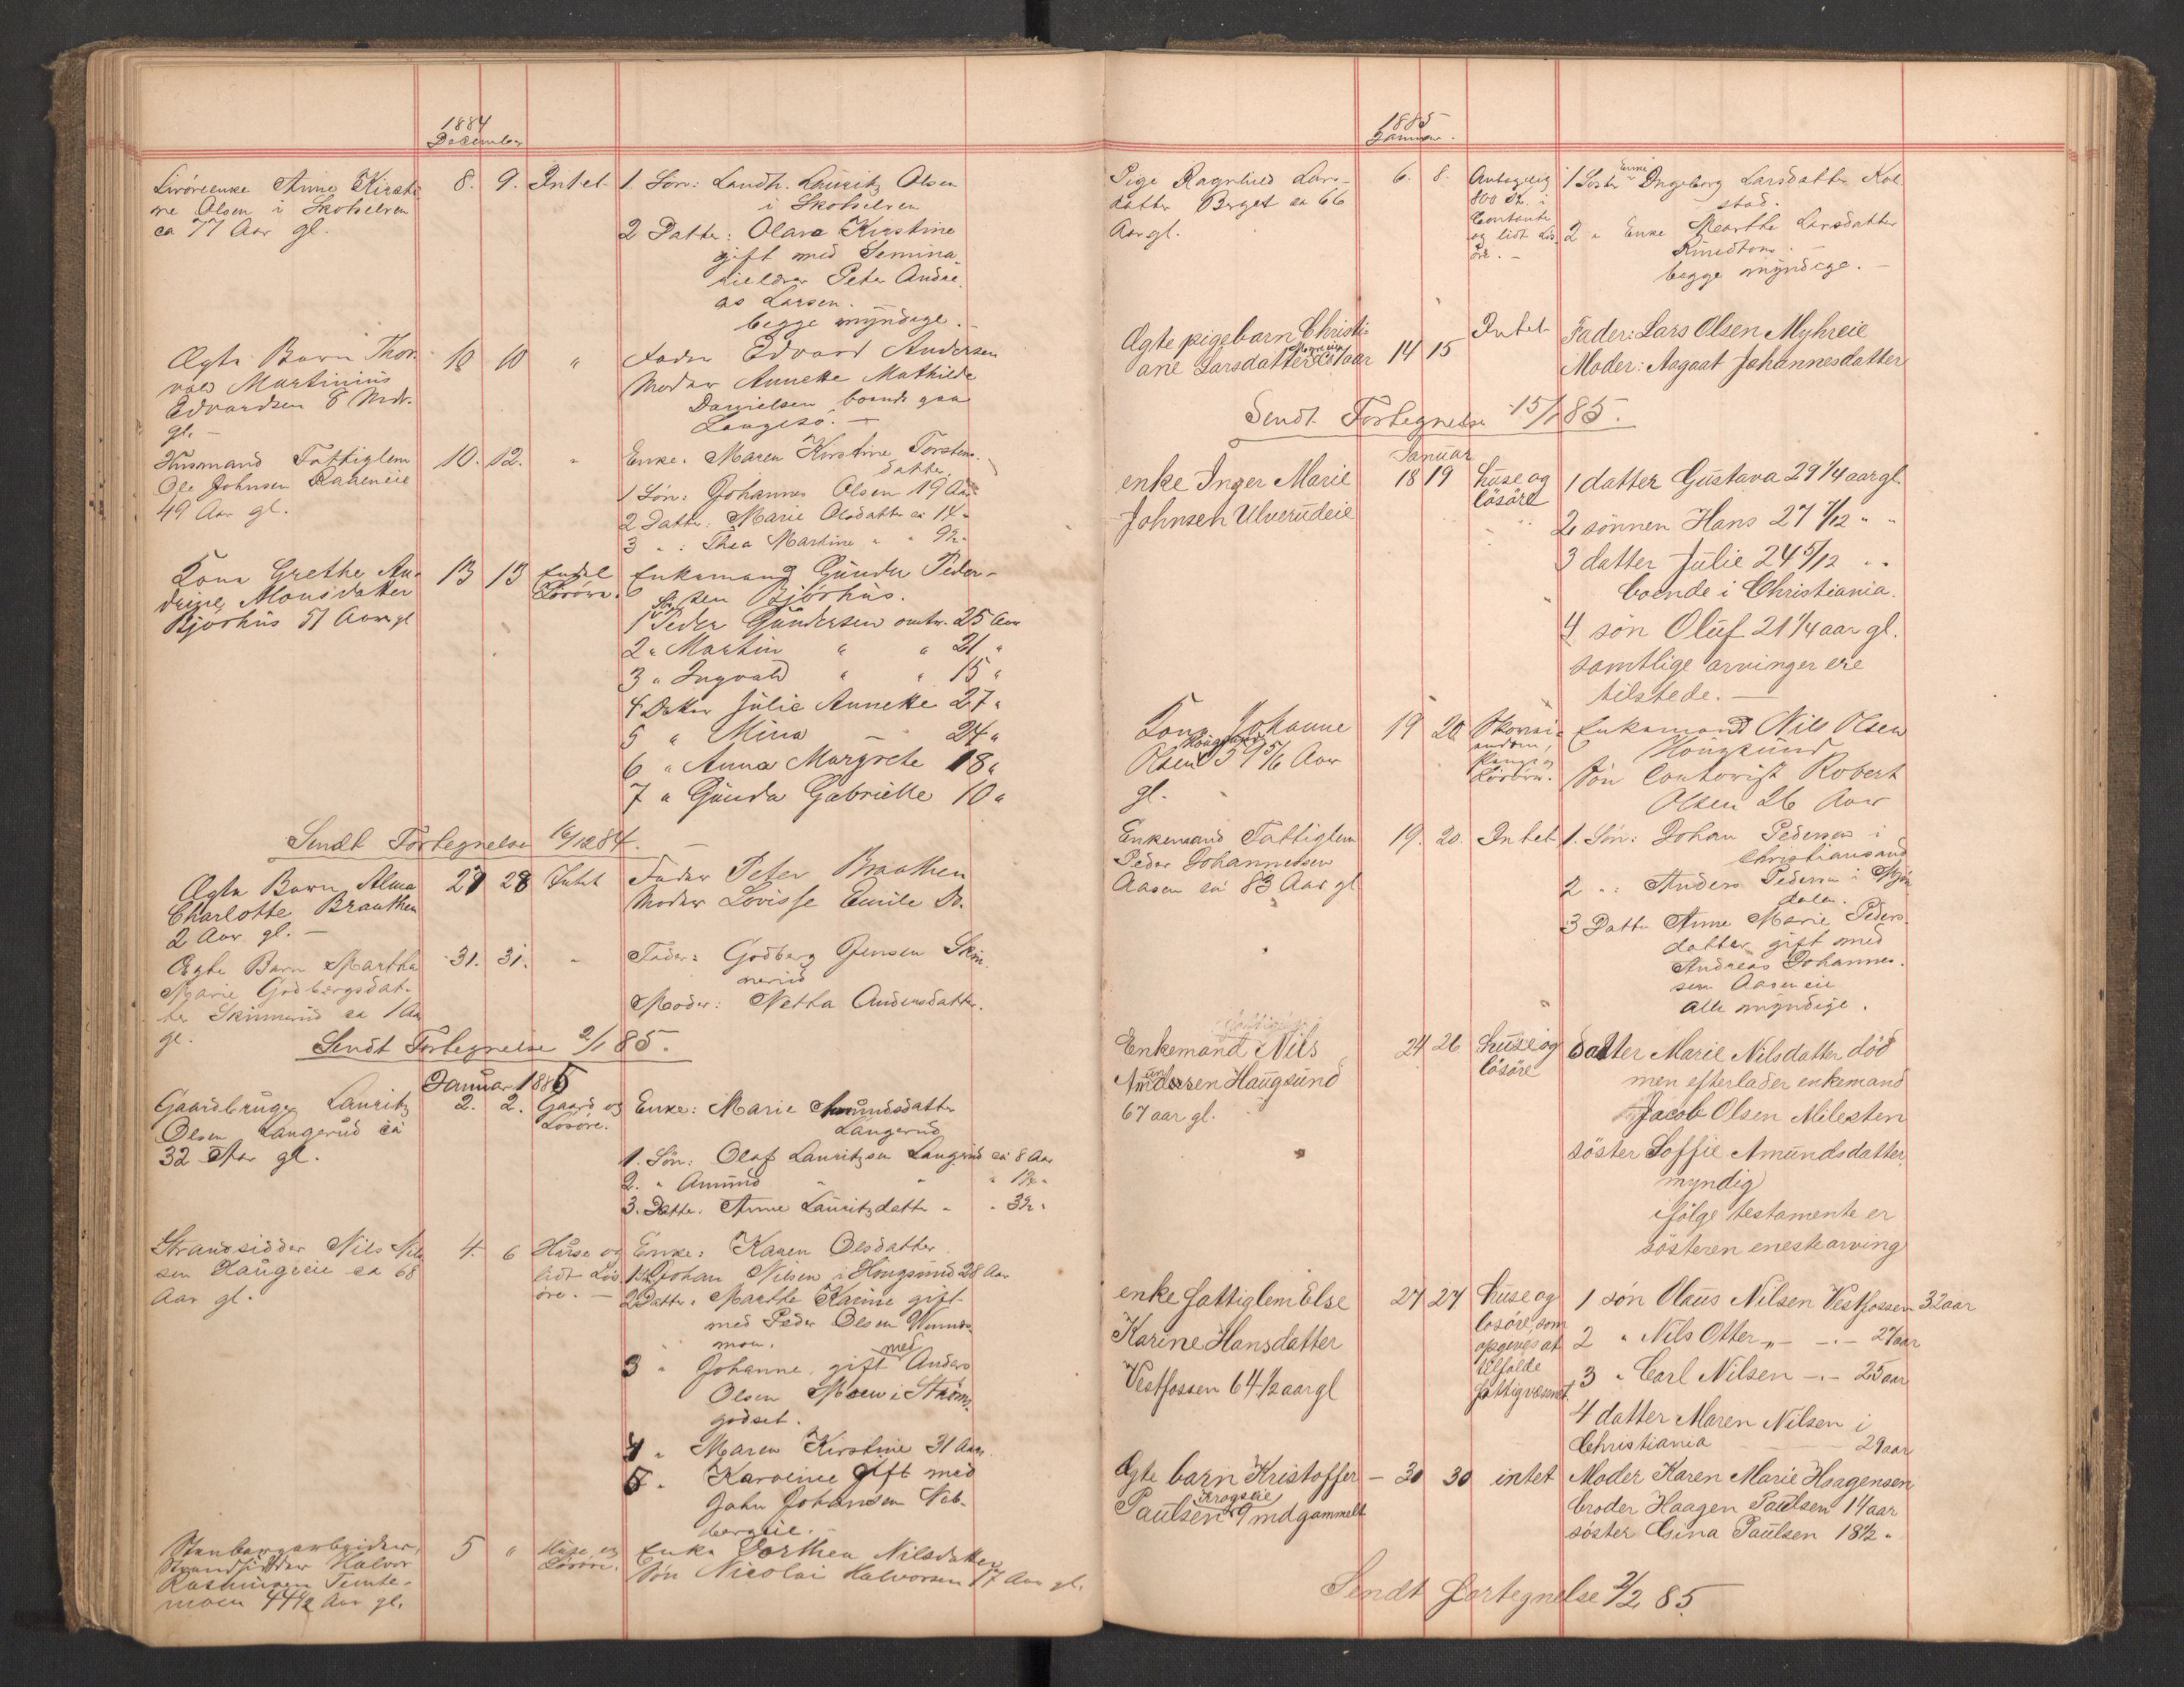 1884
December
Livöreenke Anne Kirsti-
ne Olsen i Skotselven
ca 77 Aar gl.
8. 9. Intet
1. Sön: Landh. Lauritz Olsen
i Skotselven
2 Datter: Olava Kirstine
gift med Semina-
rielærer Peter Andre-
as Larsen.
begge myndige.
Ægte Barn Thor-
vald Martinius
Edvardsen 8 Mdr.
gl. -
10 10 "
Fader Edvard Andersen
Moder Annette Mathilde
Danielsen, boende paa
Langesö. -
Husmand Fattiglem
Ole Johnsen Raaeneie
49 Aar gl.
10. 12. "
Enke. Maren Kirstine Torstens-
datter.
1 Sön: Johannes Olsen 19 Aar
2 Datter: Marie Olsdatter ca 14 "
3 " : Thea Martine " " 9½ "
Kona Grethe An-
drine Monsdatter
Bjórhus 51 Aar gl
13 13 Endel
Lösöre.
Enkemand Gunder Peder-
sen Bjórhus.
1 Sön Peder Gundersen omtr. 25 Aar
2 " Martin " " 21 "
3 " Ingvald " " 15 "
4 Datter Julie Annette 27 "
5 " Mina - 24 "
6 " Anna Margrete 18 "
7 " Gunda Gabrielle 10 "
Sendt Fortegnelse 16/12 84.
Ægte Barn Alma
Charlotte Braathen
2 Aar gl. -
27 28 Intet
Fader Peter Braathen
Moder Lovisse Emilie Do.
Ægte Barn Martha
Marie Godbergsdat-
ter Skinnerud ca 1 Aar
gl.
31. 31. "
Fader: Godberg Jensen Skin-
nerud
Moder: Netha Andersdatter.
Sendt Fortegnelse 2/1 85.
Januar 1885
Gaardbruger Lauritz
Olsen Langerud ca
32 Aar gl.
2. 2. Gaard og
Lösöre.
Enke: Marie Amundsdatter
Langerud
1. Sön: Olaf Lauritzsen Langerud ca 8 Aar
2. " Amund " " " 1½ "
3. Datter. Anne Lauritzdatter " " 3½ "
Strandsidder Nils Nil-
sen Haugeeie ca 68
Aar gl.
4. 6 Huse og
lidt Lös-
öre. -
Enke: Karen Olsdatter
1 Sön Johan Nilsen i Hougsund 28 Aar
2 Datter. Marthe Karine gift
med Peder Olsen
moen.
3 " Johanne, gift med Anders
Olsen Moen i Ströms-
godset.
4 " Maren Kirstine 31 Aar.
5. Karoline gift med
John Johansen Veb-
bergeie. -
Stenbergarbeider,
Strandsidder Halvor
Rasmussen Teinte-
moen 44½ Aar gl.
5 " Huse og
Lösöre.
Enke Dorthea Nilsdatter
Sön Nicolai Halvorsen 17 Aar gl.
1885
Januar.
Pige Ragnhild Lars-
datter Berget ca 66
Aar gl.
6. 8. Antagelig
800 Kr. i
Contante
og lidt Lös-
öre. -
1 Söster Enke Ingeborg Larsdatter Kol-
stad.
2 " Enke Marthe Larsdatter
begge myndige. -
Ægte pigebarn Christi-
ane Larsdatter 1 aar
14 15 Intet
Fader: Lars Olsen Myhreie
Moder: Aagaat Johannesdatter
Sendt Fortegnelse 15/1 85.
Januar
enke Inger Marie
Johnsen Ulverudeie
18 19 huse og
lösöre
1 datter Gustava 29 ¼ aar gl.
2 sönnen Hans 27 7/12 " "
3 datter Julie 24 5/12 " "
boende i Christiania.
4 sön Oluf 21 ¼ aar gl.
samtlige arvinger ere
tilstede. -
Kona Johanne
Olsen Hougsund 57 5/6 Aar
gl.
19 20
Lösöre.
Enkemand Nils Olsen
Hougsund
Sön Contorist Robert
Olsen 26 Aar
Enkemand Fattiglem
Peder Johannessen
Aasen ca 83 Aar gl
19. 20. Intet
1. Sön: Johan Pedersen i
Christiansand
2 " : Anders Pedersen i Mjön-
dalen.
3 Datter Anne Marie Peders-
datter gift med
Andreas Johannes-
sen Aaseneie
alle myndige.
Enkemand Nils
Amundsen Haugsund
67 aar gl.
24 26 huse og
lösöre
datter Marie Nilsdatter död
men efterlader enkemand
Jacob Olsen Milesten
söster Soffie Amundsdatter
myndig
ifölge testamente er
sösteren enestearving
enke fattiglem Else
Karine Hansdatter
Vestfossen 64 ½ aar gl
27 27 huse og
lösöre, som
opgives at
tilfalde
fattigvæsenet.
1 sön Olaus Nilsen Vestfossen 32 aar
2 " Nils Otter " - " - 27 aar
3 " Carl Nilsen - " - 25 aar
4 datter Maren Nilsen i
Christiania 29 aar
Ægte barn Kristoffer
Paulsen Krogseie 9 md gammelt
- 30 30 intet
Moder Karen Marie Haagensen
broder Haagen Paulsen 14 aar
söster Gina Paulsen 18½ "
Sendt fortegnelse 2/2 85.